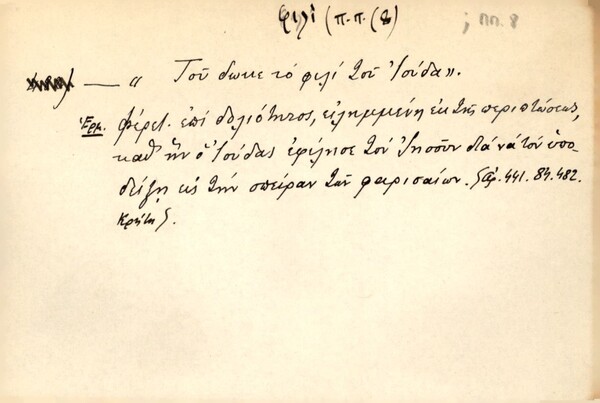 φιλί (π.π. (8) ; ππ. 8
— « Τοῦ δωκε τὸ φιλί τοῦ Ἰούδα».
Ἑρμ. Φέρετ. ἐπί δολιότητος, εἰλημμένη ἐκ τῆς περιπτώσεως,
καθ' ἥν ὁ Ἰούδας ἐφίλησε τόν Ἰησοῦν διά νά τόν ὑπο-
δείξῃ εἰς τήν σπεῖραν τῶν φαρισαίων. 441. 84. 482.
Κρήτη